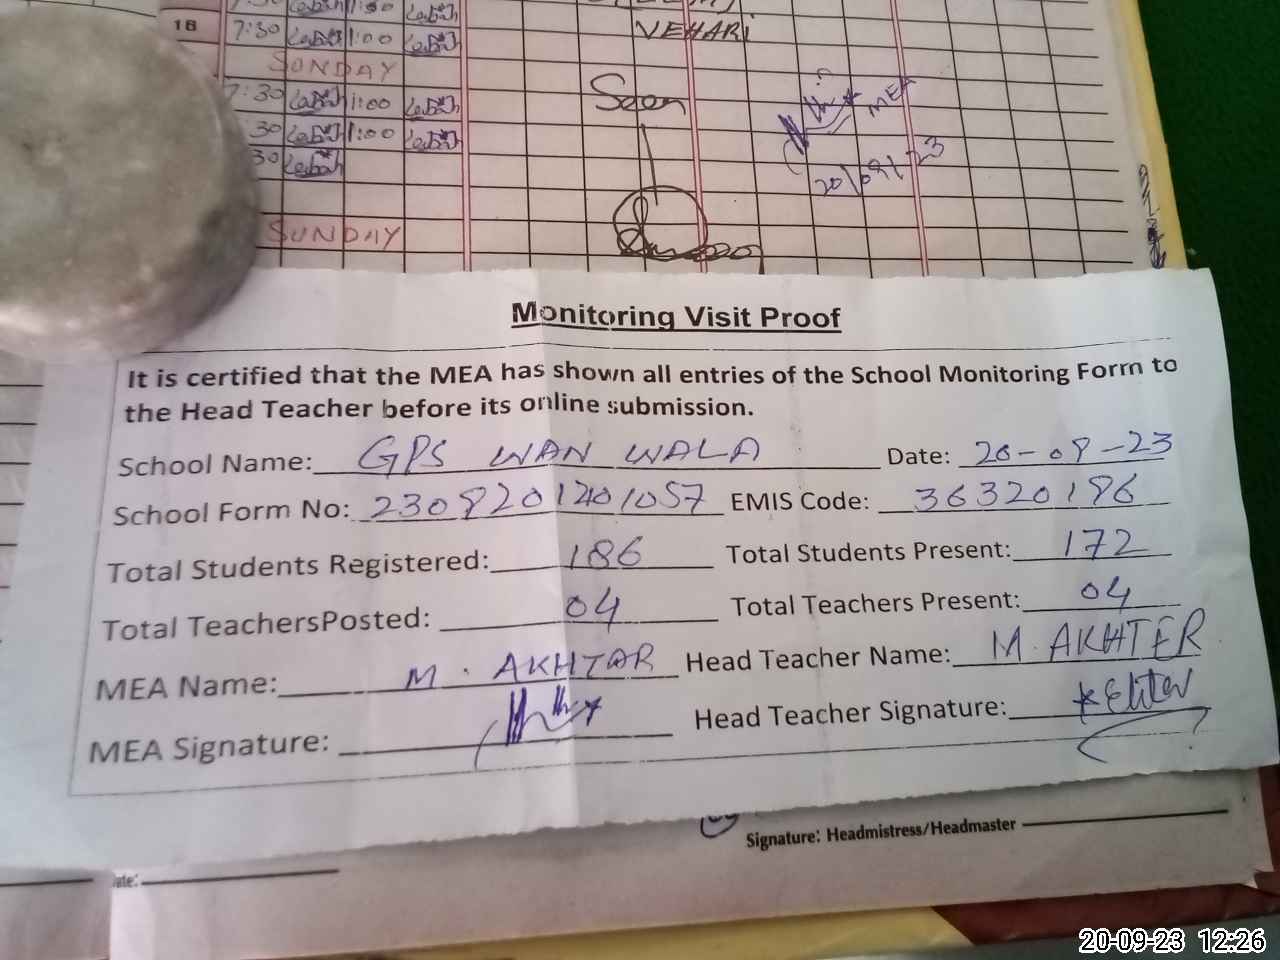 VEHARI
16 7:30 1:00
SUNDAY
7:30 1:00 Seen MEA
30 1:00
30 20/09/23
SUNDAY
Monitoring Visit Proof
It is certified that the MEA has shown all entries of the School Monitoring Form to
the Head Teacher before its online submission.
School Name: GPS WAN WALA Date: 20-09-23
School Form No: 2309201201057 EMIS Code: 36320186
Total Students Registered: 186 Total Students Present: 172
Total TeachersPosted: 04 Total Teachers Present: 04
MEA Name: M. AKHTAR Head Teacher Name: M. AKHTER
MEA Signature: Head Teacher Signature:
Signature: Headmistress/Headmaster
ate:
20-09-23 12:26